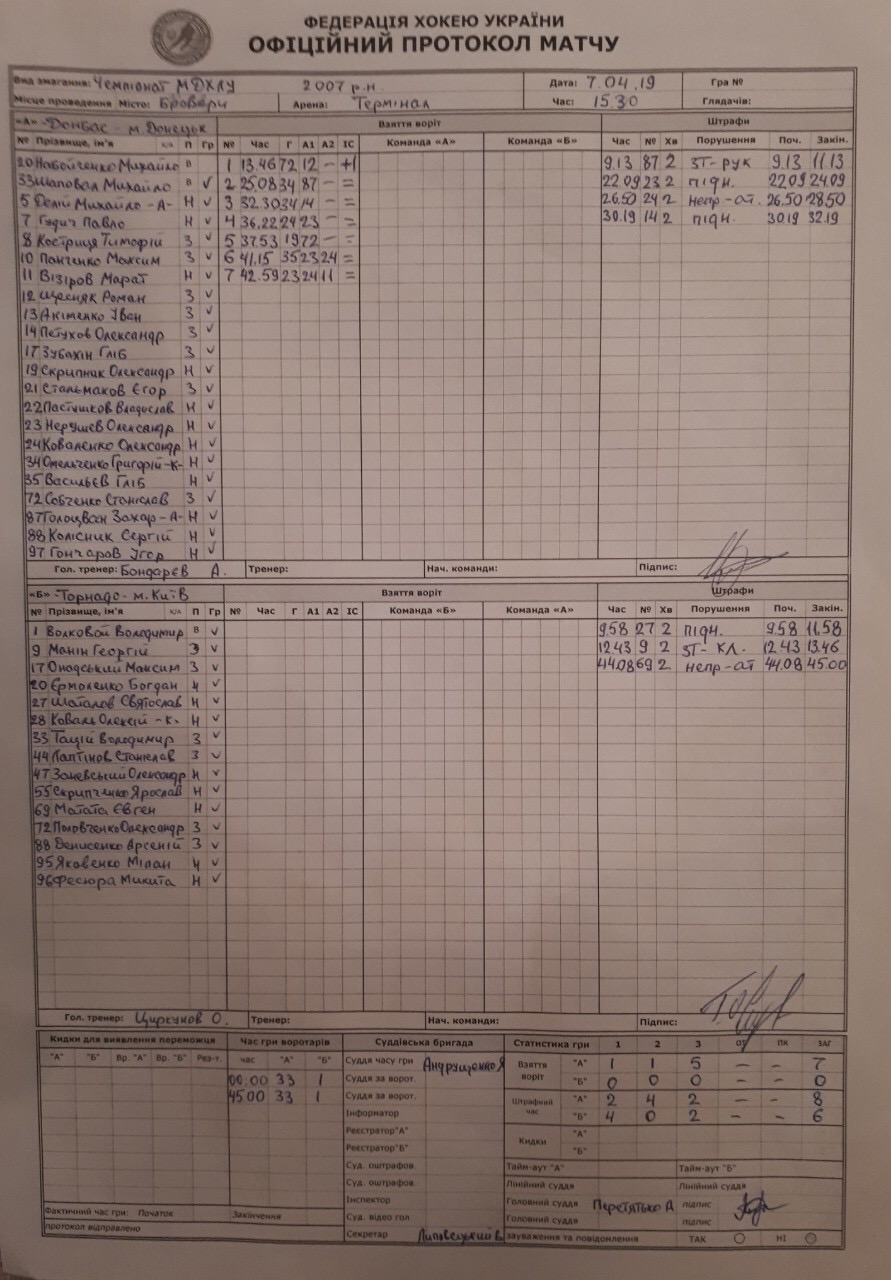 ФЕДЕРАЦІЯ ХОКЕЮ УКРАЇНИ
ОФІЦІЙНИЙ ПРОТОКОЛ МАТЧУ
Вид змагання: Чемпіонат МДХЛУ 2007 р.н. Дата: 7.04.19 Гра №
Місце проведення Місто: Бровари Арена: Термінал Час: 15.30 Глядачів:
«А» - Донбас - м. Донецьк Взяття воріт Штрафи
№ Прізвище, ім'я К/А П Гр № Час Г А1 А2 ІС Команда «А» Команда «Б» Час № Хв Порушення Поч. Закін.
20 Набойченко Михайло В 1 13.46 72 12 – +1 9.13 87 2 ЗТ-рук 9.13 11.13
33 Шаповал Михайло В V 2 25.08 34 87 – = 22.09 23 2 підн. 22.09 24.09
5 Делій Михайло -А- Н V 3 32.30 34 14 – = 26.50 24 2 непр-ат. 26.50 28.50
7 Гудич Павло Н V 4 36.22 24 23 – = 30.19 14 2 підн. 30.19 32.19
8 Костриця Тимофій З V 5 37.53 19 72 – =
10 Панченко Максим З V 6 41.15 35 23 24 =
11 Візіров Марат Н V 7 42.59 23 24 11 =
12 Роман З V
13 Акіменко Іван З V
14 Пєтухов Олександр З V
17 Зубахін Гліб З V
19 Скрипник Олександр Н V
21 Стальмаков Єгор З V
22 Пастушков Владислав Н V
23 Нерушев Олександр Н V
24 Коваленко Олександр Н V
34 Омельченко Григорій -К- Н V
35 Васильєв Гліб Н V
72 Собченко Станіслав З V
87 Захар -А- Н V
88 Колісник Сергій Н V
97 Гончаров Ігор Н V
Гол. тренер: Бондарєв А. Тренер: Нач. команди: Підпис:
«Б» - Торнадо - м. Київ Взяття воріт Штрафи
№ Прізвище, ім'я К/А П Гр № Час Г А1 А2 ІС Команда «Б» Команда «А» Час № Хв Порушення Поч. Закін.
1 Волковой Володимир В V 9.58 27 2 підн. 9.58 11.58
9 Манін Георгій З V 12.43 9 2 ЗТ-КЛ. 12.43 13.46
17 Максим З V 44.08 69 2 непр-ат 44.08 45.00
20 Єрмоленко Богдан Н V
27 Шаталов Святослав Н V
28 Коваль Олексій -К- Н V
33 Тацій Володимир З V
44 Лаптінов Станіслав З V
47 Заневський Олександр Н V
55 Скрипченко Ярослав Н V
69 Матата Євген Н V
72 Половченко Олександр З V
88 Денисенко Арсеній З V
95 Яковенко Мілан Н V
96 Фесюра Микита Н V
Гол. тренер: Циркунов О. Тренер: Нач. команди: Підпис:
Кидки для виявлення переможця Час гри воротарів Суддівська бригада Статистика гри 1 2 3 ОТ ПК ЗАГ
"А" "Б" Вр. "А" Вр. "Б" Рез-т. час "А" "Б" Суддя часу гри Андрущенко Я Взяття воріт "А" 1 1 5 – – 7
00:00 33 1 Суддя за ворот. "Б" 0 0 0 – – 0
45.00 33 1 Суддя за ворот. Штрафний час "А" 2 4 2 – – 8
Інформатор "Б" 4 0 2 – – 6
Реєстратор"А" Кидки "А"
Реєстратор"Б" "Б"
Суд. оштрафов. Тайм-аут "А" Тайм-аут "Б"
Суд. оштрафов. Лінійний суддя Лінійний суддя
Інспектор Головний суддя Перетятько Д підпис
Фактичний час гри: Початок Закінчення Суд. відео гол Головний суддя підпис
протокол відправлено Секретар Липовецький В. зауваження та повідомлення ТАК НІ